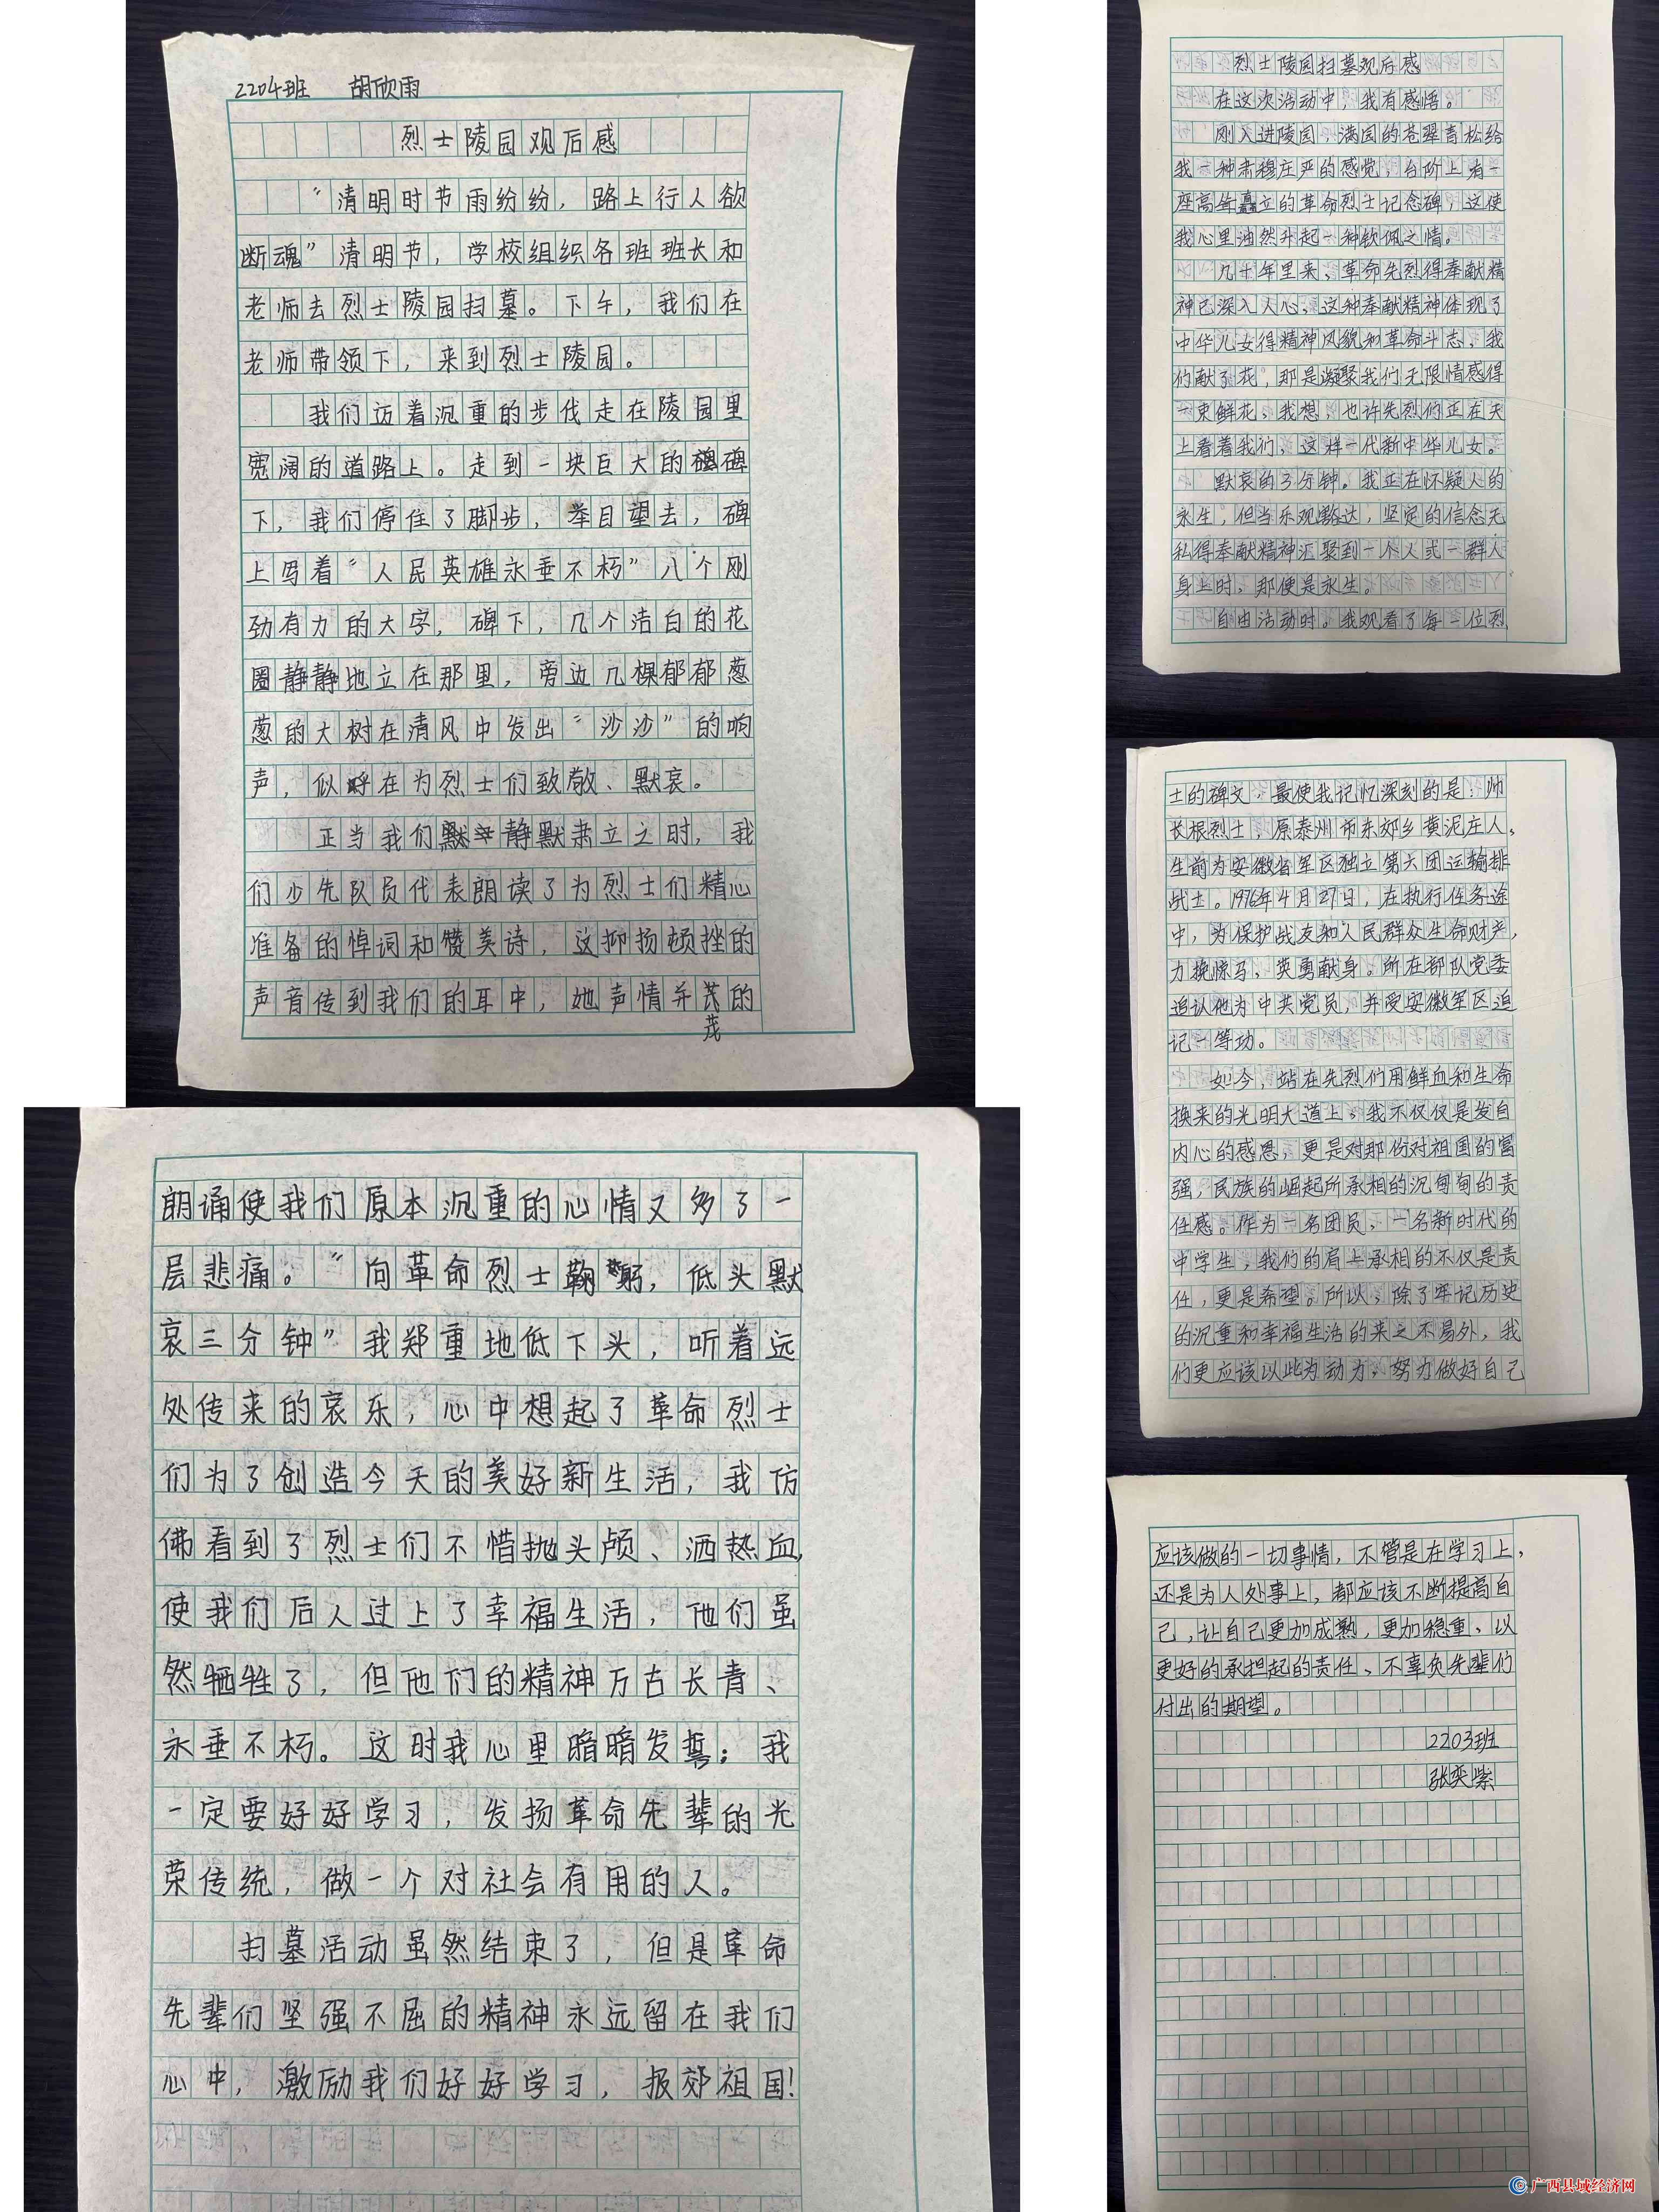 2204班 胡欣雨
烈士陵园观后感
“清明时节雨纷纷，路上行人欲
断魂”清明节，学校组织各班班长和
老师去烈士陵园扫墓。下午，我们在
老师带领下，来到烈士陵园。
我们迈着沉重的步伐走在陵园里
宽阔的道路上。走到一块巨大的碑
下，我们停住了脚步，举目望去，碑
上写着“人民英雄永垂不朽”八个刚
劲有力的大字，碑下，几个洁白的花
圈静静地立在那里，旁边几棵郁郁葱
葱的大树在清风中发出“沙沙”的响
声，似乎在为烈士们致敬、默哀。
正当我们静默肃立之时，我
们少先队员代表朗读了为烈士们精心
准备的悼词和赞美诗，这抑扬顿挫的
声音传到我们的耳中，她声情并茂的
朗诵使我们原本沉重的心情又多了一
层悲痛。“向革命烈士鞠躬，低头默
哀三分钟”我郑重地低下头，听着远
处传来的哀乐，心中想起了革命烈士
们为了创造今天的美好新生活，我仿
佛看到了烈士们不惜抛头颅、洒热血，
使我们后人过上了幸福生活，他们虽
然牺牲了，但他们的精神万古长青、
永垂不朽。这时我心里暗暗发誓；我
一定要好好学习，发扬革命先辈的光
荣传统，做一个对社会有用的人。
扫墓活动虽然结束了，但是革命
先辈们坚强不屈的精神永远留在我们
心中，激励我们好好学习，报郊祖国！
烈士陵园扫墓观后感
在这次活动中，我有感悟。
刚入进陵园，满园的苍翠青松给
我一种肃穆庄严的感觉，台阶上有一
座高耸矗立的革命烈士记念碑，这使
我心里油然升起一种钦佩之情。
几十年里来，革命先烈得奉献精
神已深入人心，这种奉献精神体现了
中华儿女得精神风貌和革命斗志，我
们献了花，那是凝聚我们无限情感得
一束鲜花，我想，也许先烈们正在天
上看着我们，这样一代新中华儿女。
默哀的3分钟。我正在怀疑人的
永生，但当乐观豁达，坚定的信念无
私得奉献精神汇聚到一个人或一群人
身上时，那便是永生。
自由活动时。我观看了每一位烈
士的碑文，最使我记忆深刻的是：帅
长根烈士，原泰州市东郊乡黄泥庄人，
生前为安徽省军区独立第六团运输排
战士。1976年4月27日，在执行任务途
中，为保护战友和人民群众生命财产，
力挽惊马，英勇献身。所在部队党委
追认他为中共党员，并受安徽军区追
记一等功。
如今，站在先烈们用鲜血和生命
换来的光明大道上，我不仅仅是发自
内心的感恩，更是对那份对祖国的富
强，民族的崛起所承相的沉甸甸的责
任感。作为一名团员，一名新时代的
中学生，我们的肩上承相的不仅是责
任，更是希望。所以，除了牢记历史
的沉重和幸福生活的来之不易外，我
们更应该以此为动力，努力做好自己
应该做的一切事情，不管是在学习上，
还是为人处事上，都应该不断提高自
己，让自己更加成熟，更加稳重，以
更好的承担起的责任、不辜负先辈们
付出的期望。
2203班
张奕紫
广西县域经济网